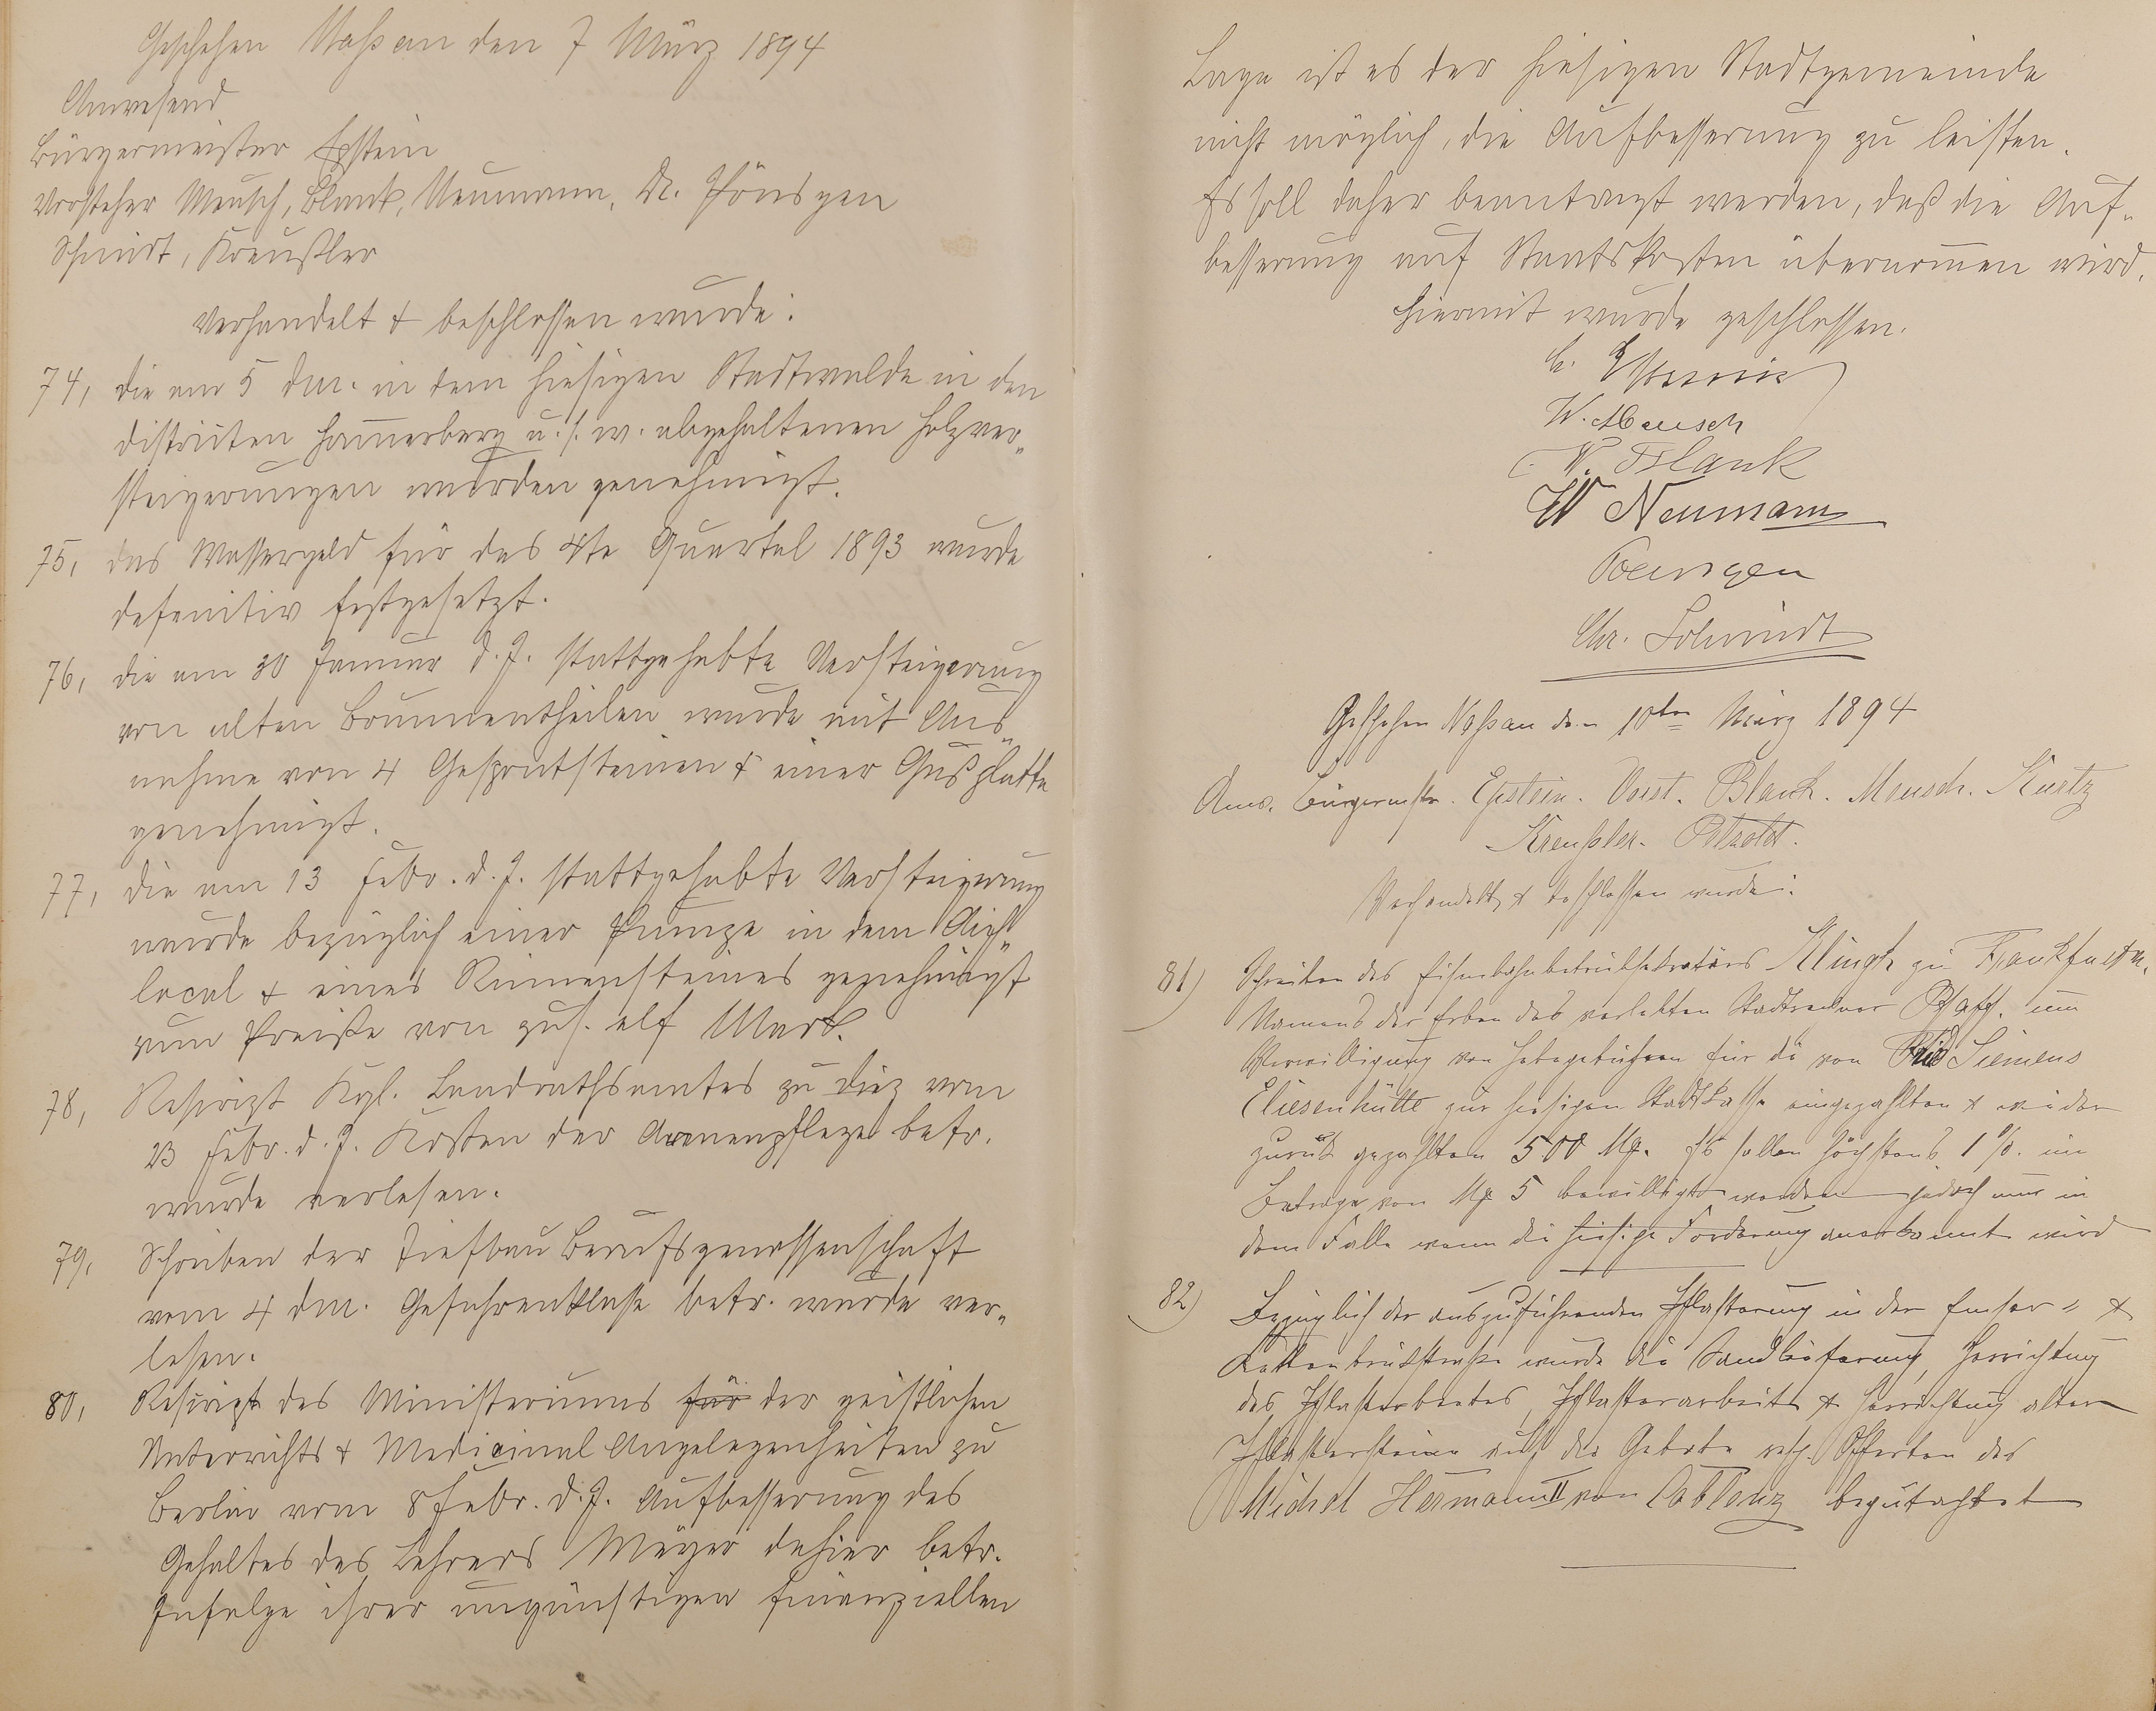 Geschehen Naßau den 7 März 1894
Anwesend
Bürgermeister Epstein
Vorsteher Meusch, Blank, Neumann, Dr. Pönsgen
Schmidt, Kreußler
Verhandelt & beschlossen wurde:
74, die am 5 dM. in dem hiesigen Stadtwalde in den
distrikten Ham̅erberg u. s. w. abgehaltenen Holzver„
steigerungen wurden genehmigt.
75, das Wassergeld für das 4te Quartal 1893 wurde
defenitiv festgesetzt.
76, die am 30 Januar d. J. stattgehabte Versteigerung
von alten Brunnentheilen wurde mit Aus„
nahme von 4 Gesprutsteinen & einer Gußplatte
genehmigt.
77, die am 13 Febr. d. J. stattgehabte Versteigerung
wurde bezüglich einer Pumpe in dem Aich„
local & eines Rinnensteines genehmigt
zum Preiße von zus. elf Mark.
78, Rescript Kgl. Landrathsamtes zu Diez vom
23 Febr. d. J. Kosten der Armenpflege betr.
wurde verlesen.
79, Schreiben der Tiefbau Berufsgenossenschaft
vom 4 dM. Gefahrenklasse betr. wurde ver„
lesen.
80, Rescript des Ministeriums für der geistlichen
Unterrichts & Medicinal Angelegenheiten zu
Berlin vom 8 Febr. d. J. Aufbesserung des
Gehaltes des Lehrers Meyer dahier betr.
Infolge ihrer ungünstigen finanziellen
Lage ist es der hiesigen Stadtgemeinde
nicht möglich, die Aufbesserung zu leisten.
Es soll daher beantragt werden, daß die Auf„
besserung auf Staatskosten übernom̅en wird.
Hiermit wurde geschlossen.
Epstein
W. Meusch
W. Blank
W Neumann
Poensgen
Chr. Schmidt
Geschehen Naßau den 10ten März 1894
Anw. Bürgermstr. Epstein. Vorst. Blank. Meusch. Kurtz
Kreußler. Petzoldt.
Verhandelt & beschlossen wurde:
81) Schreiben des Eisenbahnbetriebssekretärs zu Frankfurt a/M.
Namens der Erben des verlebten Stadtrechner Pfaff. um
Verwilligung von Hebegebühren für die von Siemens
Eliesenhütte zur hiesigen Stadtkasse eingezahlten & wieder
zurück gezahlten 500 Mk. Es sollen höchstens 1 %. im
Betrage von Mk 5 bewilligt werden jedoch nur in
dem Falle wenn die hiesige Forderung anerkannt wird
82) Bezüglich der auszuführenden Pflasterung in der Emser- &
Kettenbrückstraße wurde die Sandlieferung, Herrichtung
des Pflasterbeetes, Pflasterarbeit & Herrichtung alter
Pflastersteine auf die Gebote resp. Offerten des
Michel Hermann II von Coblenz begutachtet